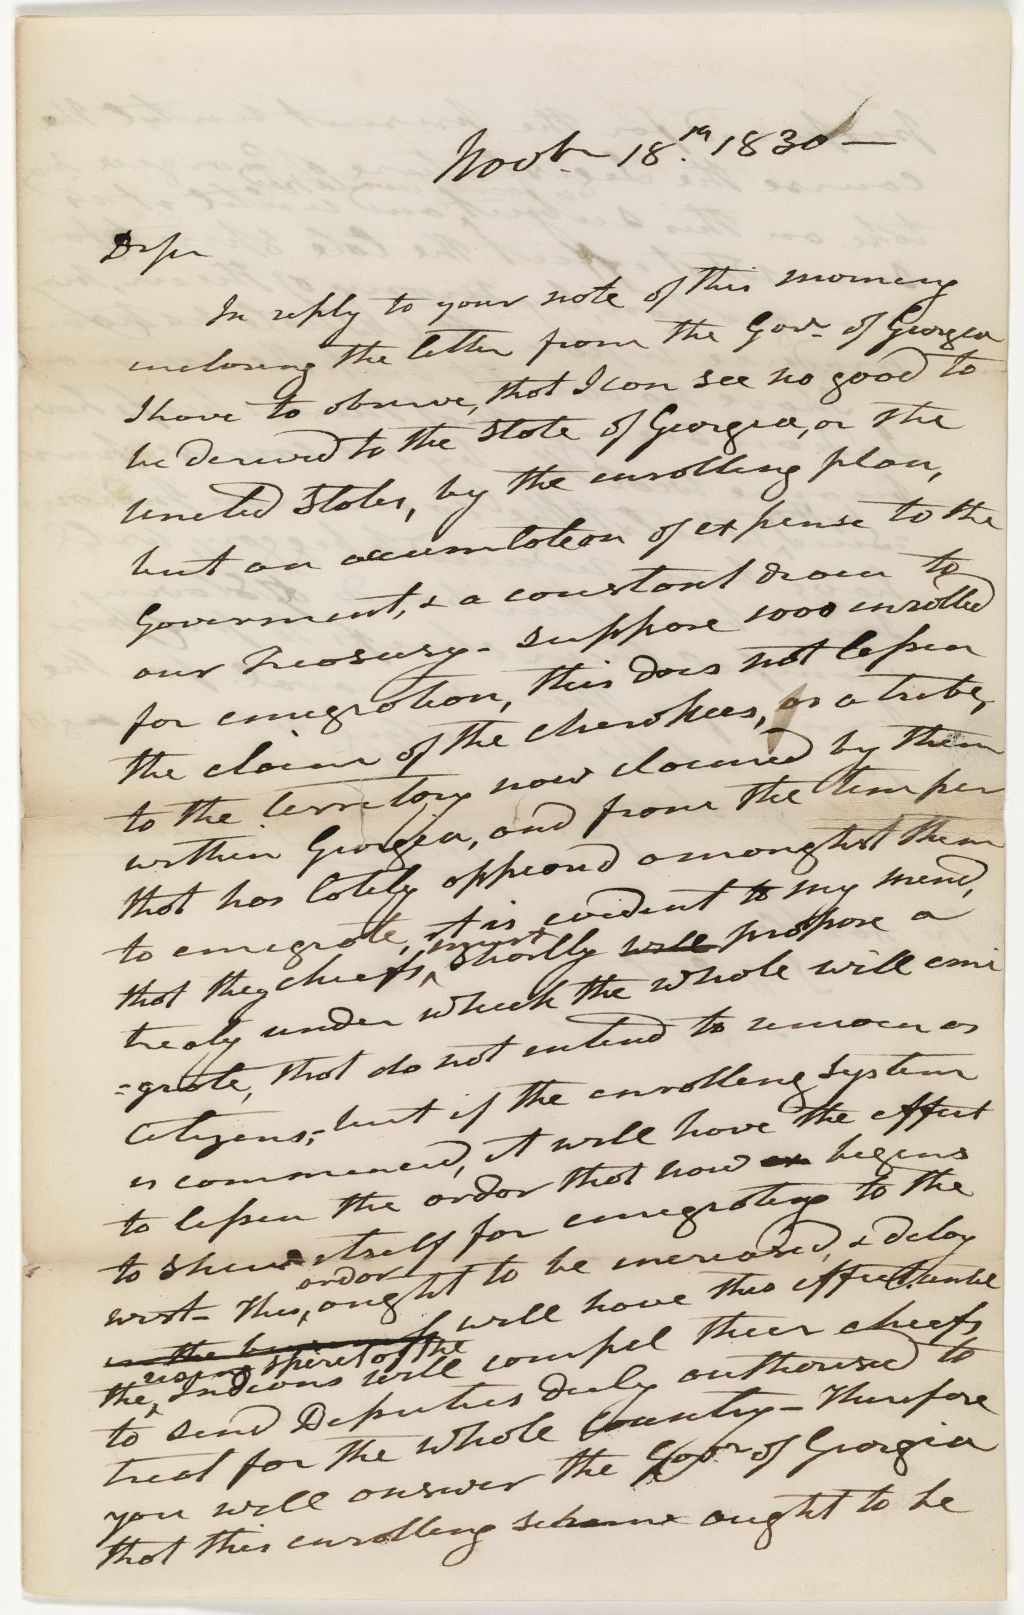 Novbr. 18th. 1830—
Dr Sir
In reply to your note of this morning
inclosing the letter from the Govr. of Georgia
I have to observe, that I can see no good to
be derived to the State of Georgia, or the
United States, by the enrolling plan,
but an accumulation of expense to the
Goverment, & a constant drain to
our Treasury- suppose 1000 enrolled
for emigration, this does not lessen
the claim of the cherokees, as a tribe,
to the territory now claimed by them
within Georgia, and from the temper
that has lately appeard amonghst them
to emigrate, it is evident to my mind,
that they chiefs, must shortly will propose a
treaty under which the whole will emi
=grate, that do not intend to remain as
citizens;- but if the enrolling system
is commenced, it will have the effect
to lessen the ardor that now begins
to shew itself for emigrating to the
west- This, ardor ought to be increased, & delay
will have this effect, until
the, spirit of the Indians will compel their chiefs
to send Deputies duly authorised to
treat for the whole country- Therefore
you will answer the Govr of Georgia
that this enrolling scheme ought to be